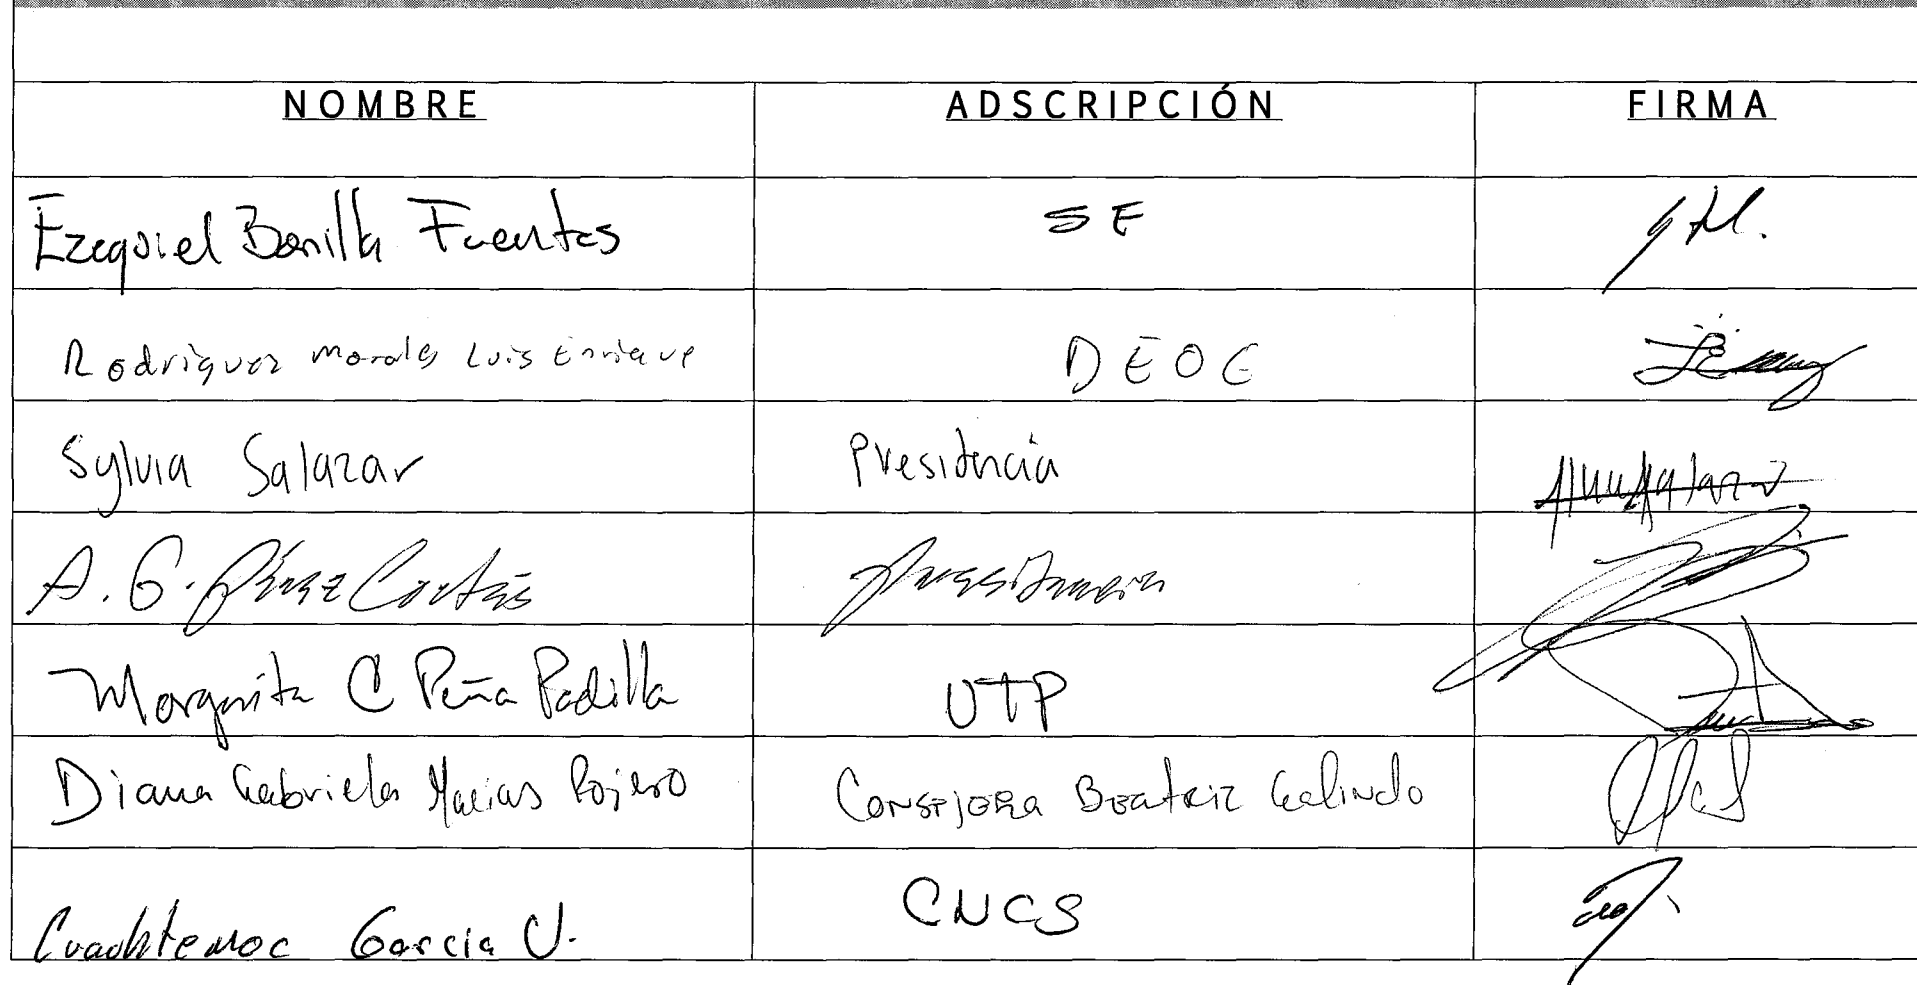 NOMBRE ADSCRIPCIÓN FIRMA
Ezequiel Bonilla Fuentes SE
Rodríguez Morales Luis Enrique DEOE
Sylvia Salazar Presidencia
A. G. Pérez Cortés Presidencia
Margarita C Peña Padilla UTP
Diana Gabriela Macias Rojero Consejera Beatriz Galindo
Cuauhtemoc García V. CNCS